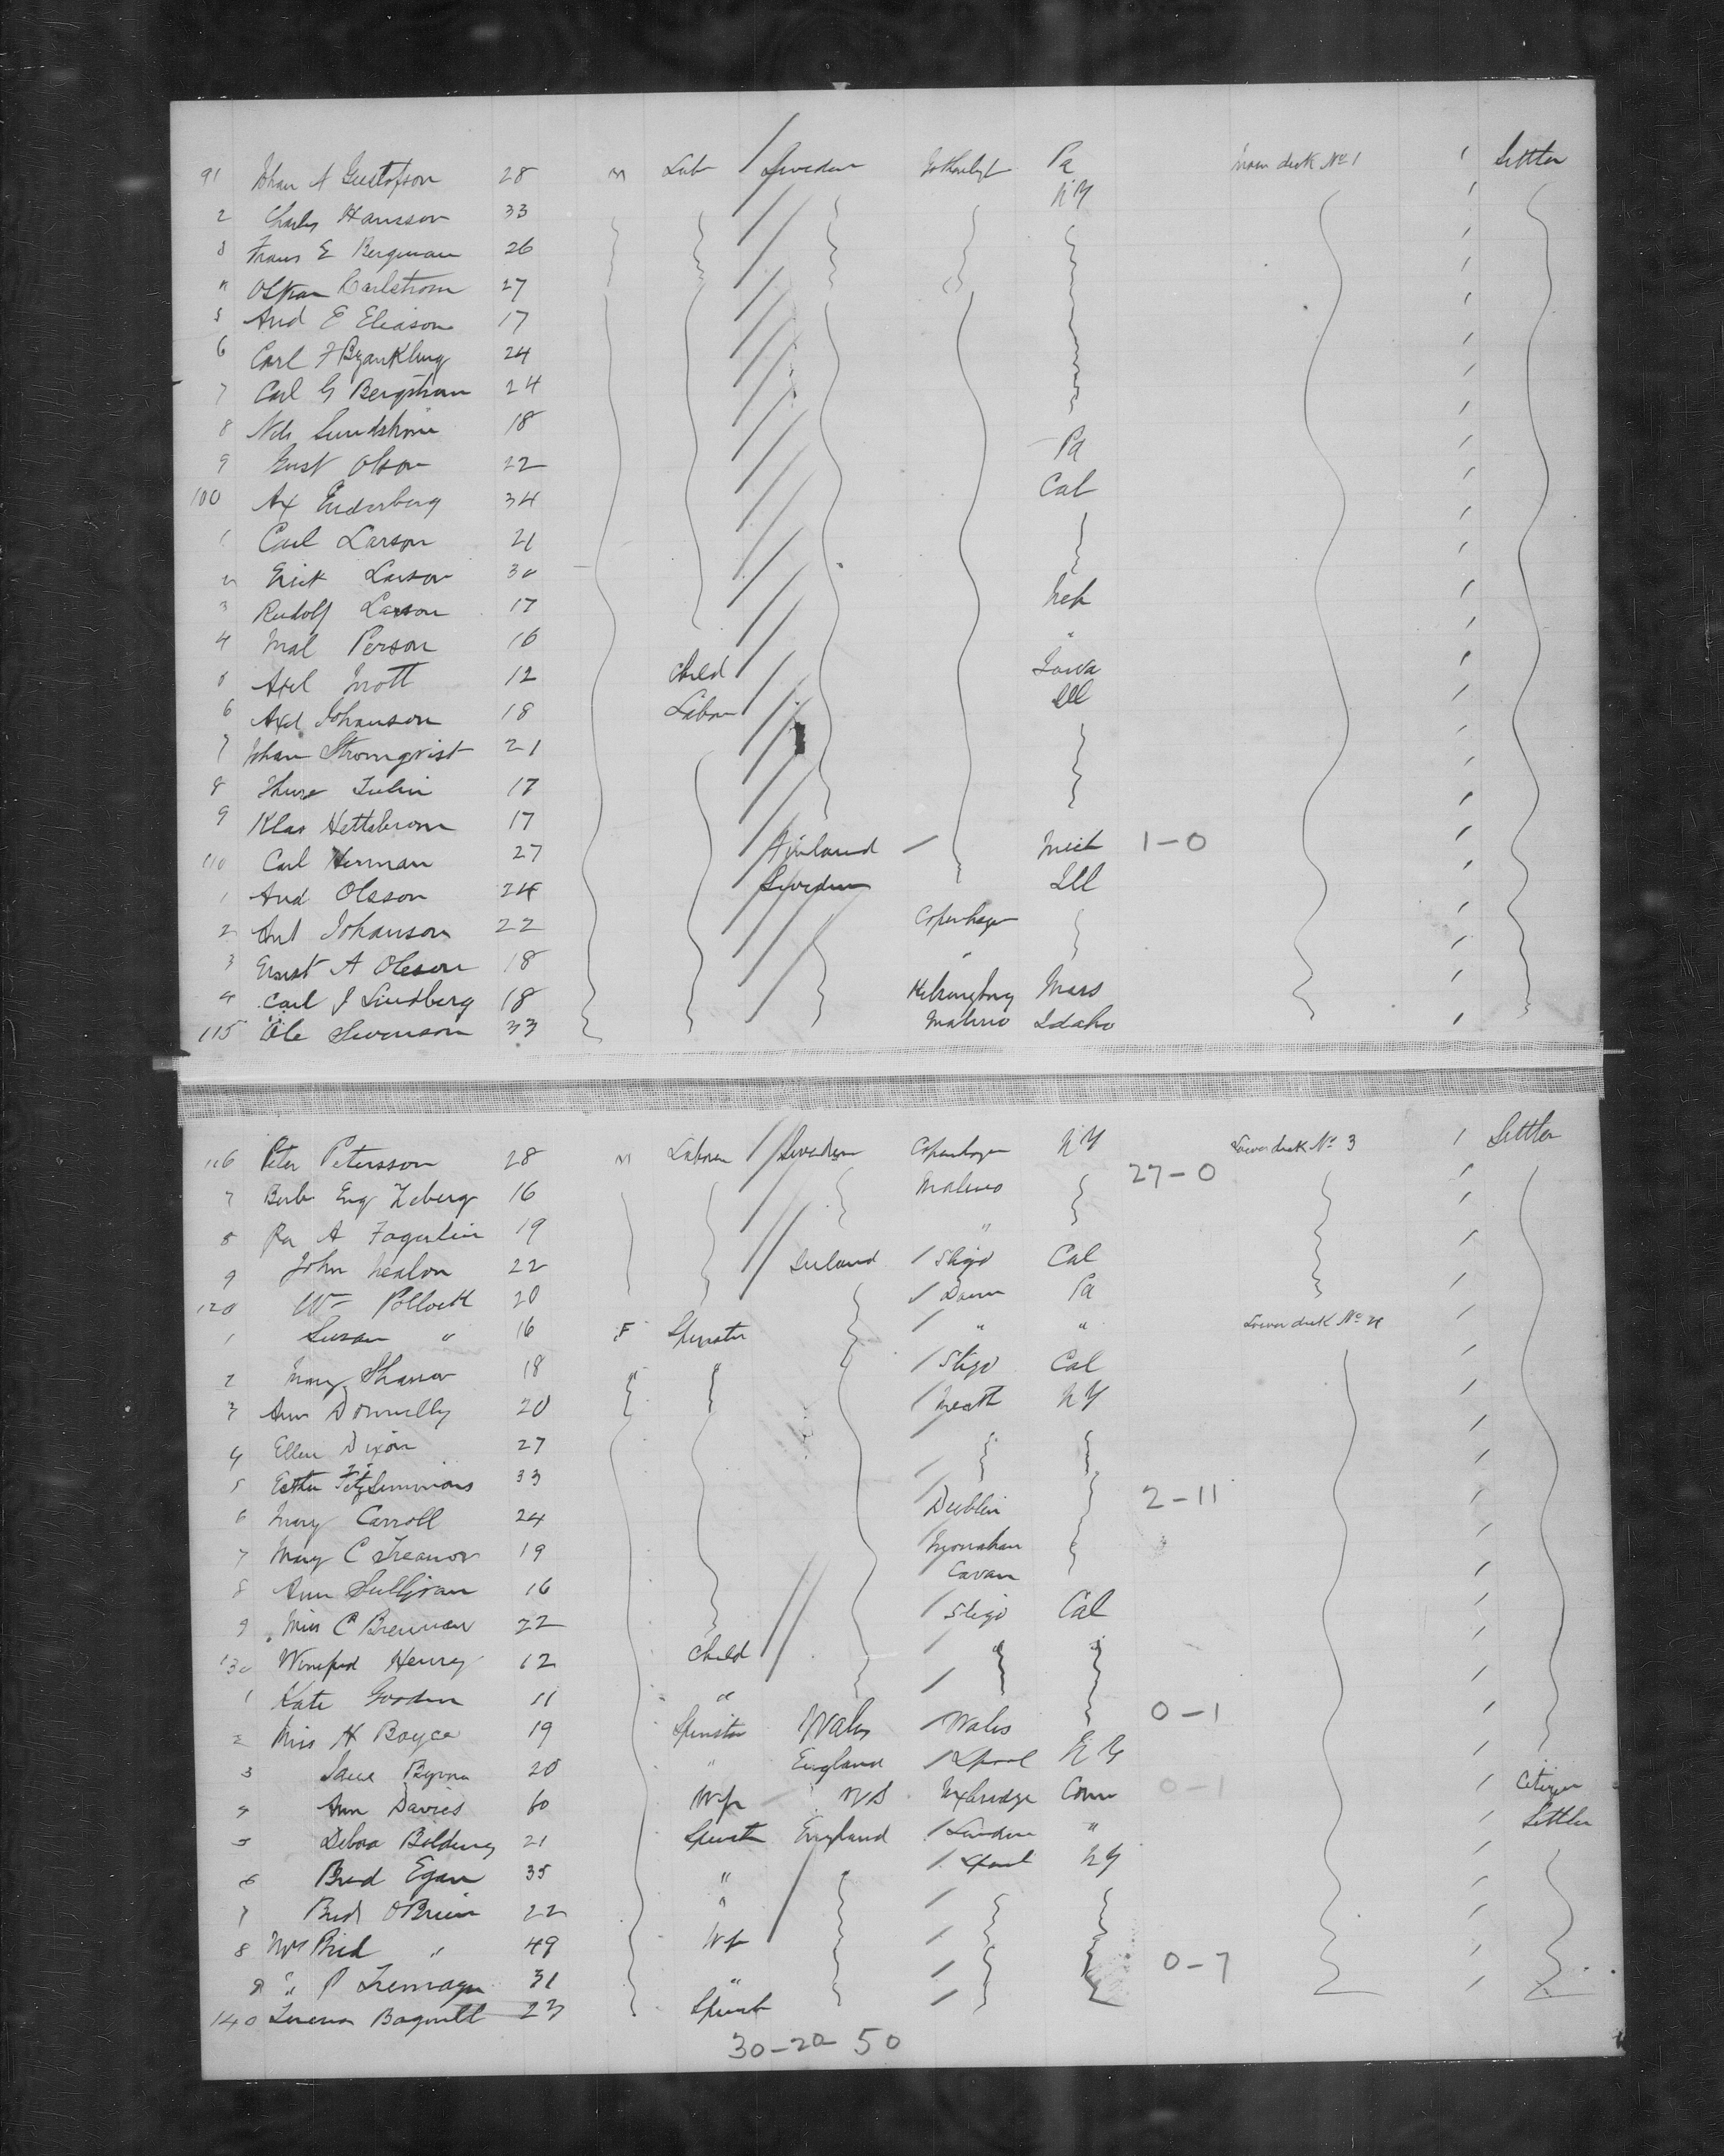 91 Johan A Gustafson 28 M Lab Sweden Pa Main deck No 1 1 Settler
2 Charles Hansson 33 NY
3 Frans E Bergman 26
4 Oskar Carlstrom 27
5 And E Eliason 17
6 Carl F 24
7 Carl G Bergstrom 24
8 Nils 18
9 Gust Olson 22 Pa
100 Ax 34 Cal
1 Carl Larson 21
2 Erick Larson 30
3 Rudolf Larson 17 Neb
4 Mal Person 16 "
5 Axel Mott 12 Child Iowa
6 Axel Johanson 18 Labor Ill
7 Johan Stromqvist 21
8 Thure Tulin 17
9 Klas 17
110 Carl Herman 27 Finland Mich 1-0
1 And Olsson 24 Sweden Ill
2 Ant Johanson 22 Copenhagen
3 Ernst A Oleson 18 "
4 Carl J Lindberg 18 Helsingborg Mass
115 Ole Swenson 33 Malmo Idaho
116 Peter Petersson 28 M Laborer Sweden Copenhagen NY Lower deck No 3 1 Settler
7 16 Malmo 27-0
8 A Fagerlin 19 "
9 John Nealon 22 Ireland Sligo Cal
120 Wm Pollock 20 Down Pa
1 Susan " 16 F Spinster " " Lower deck No 4
2 Mary Shannon 18 " " Sligo Cal
3 Ann Donnelly 20 Meath NY
4 Ellen Dixon 27
5 Esther FitzSimmons 33
6 Mary Carroll 24 Dublin 2-11
7 Mary C Treanor 19 Monahan
8 Ann Sullivan 16 Cavan
9 Miss C Brennan 22 Sligo Cal
130 Winefred Henry 12 Child
1 Kate 11 "
2 Miss H Boyce 19 Spinster Wales Wales 0-1
3 Jane 20 " England Lpool NY
4 Ann Davies 60 Wife US Uxbridge Conn 0-1 Citizen
5 Debora 21 Spinster England London " Settler
6 Brid Egan 35 " Lpool NY
7 Brid OBrien 22 "
8 Mrs Brid " 49 Wife
9 " P 31 " 0-7
140 Bagnall 23 Spinst
30-20 50